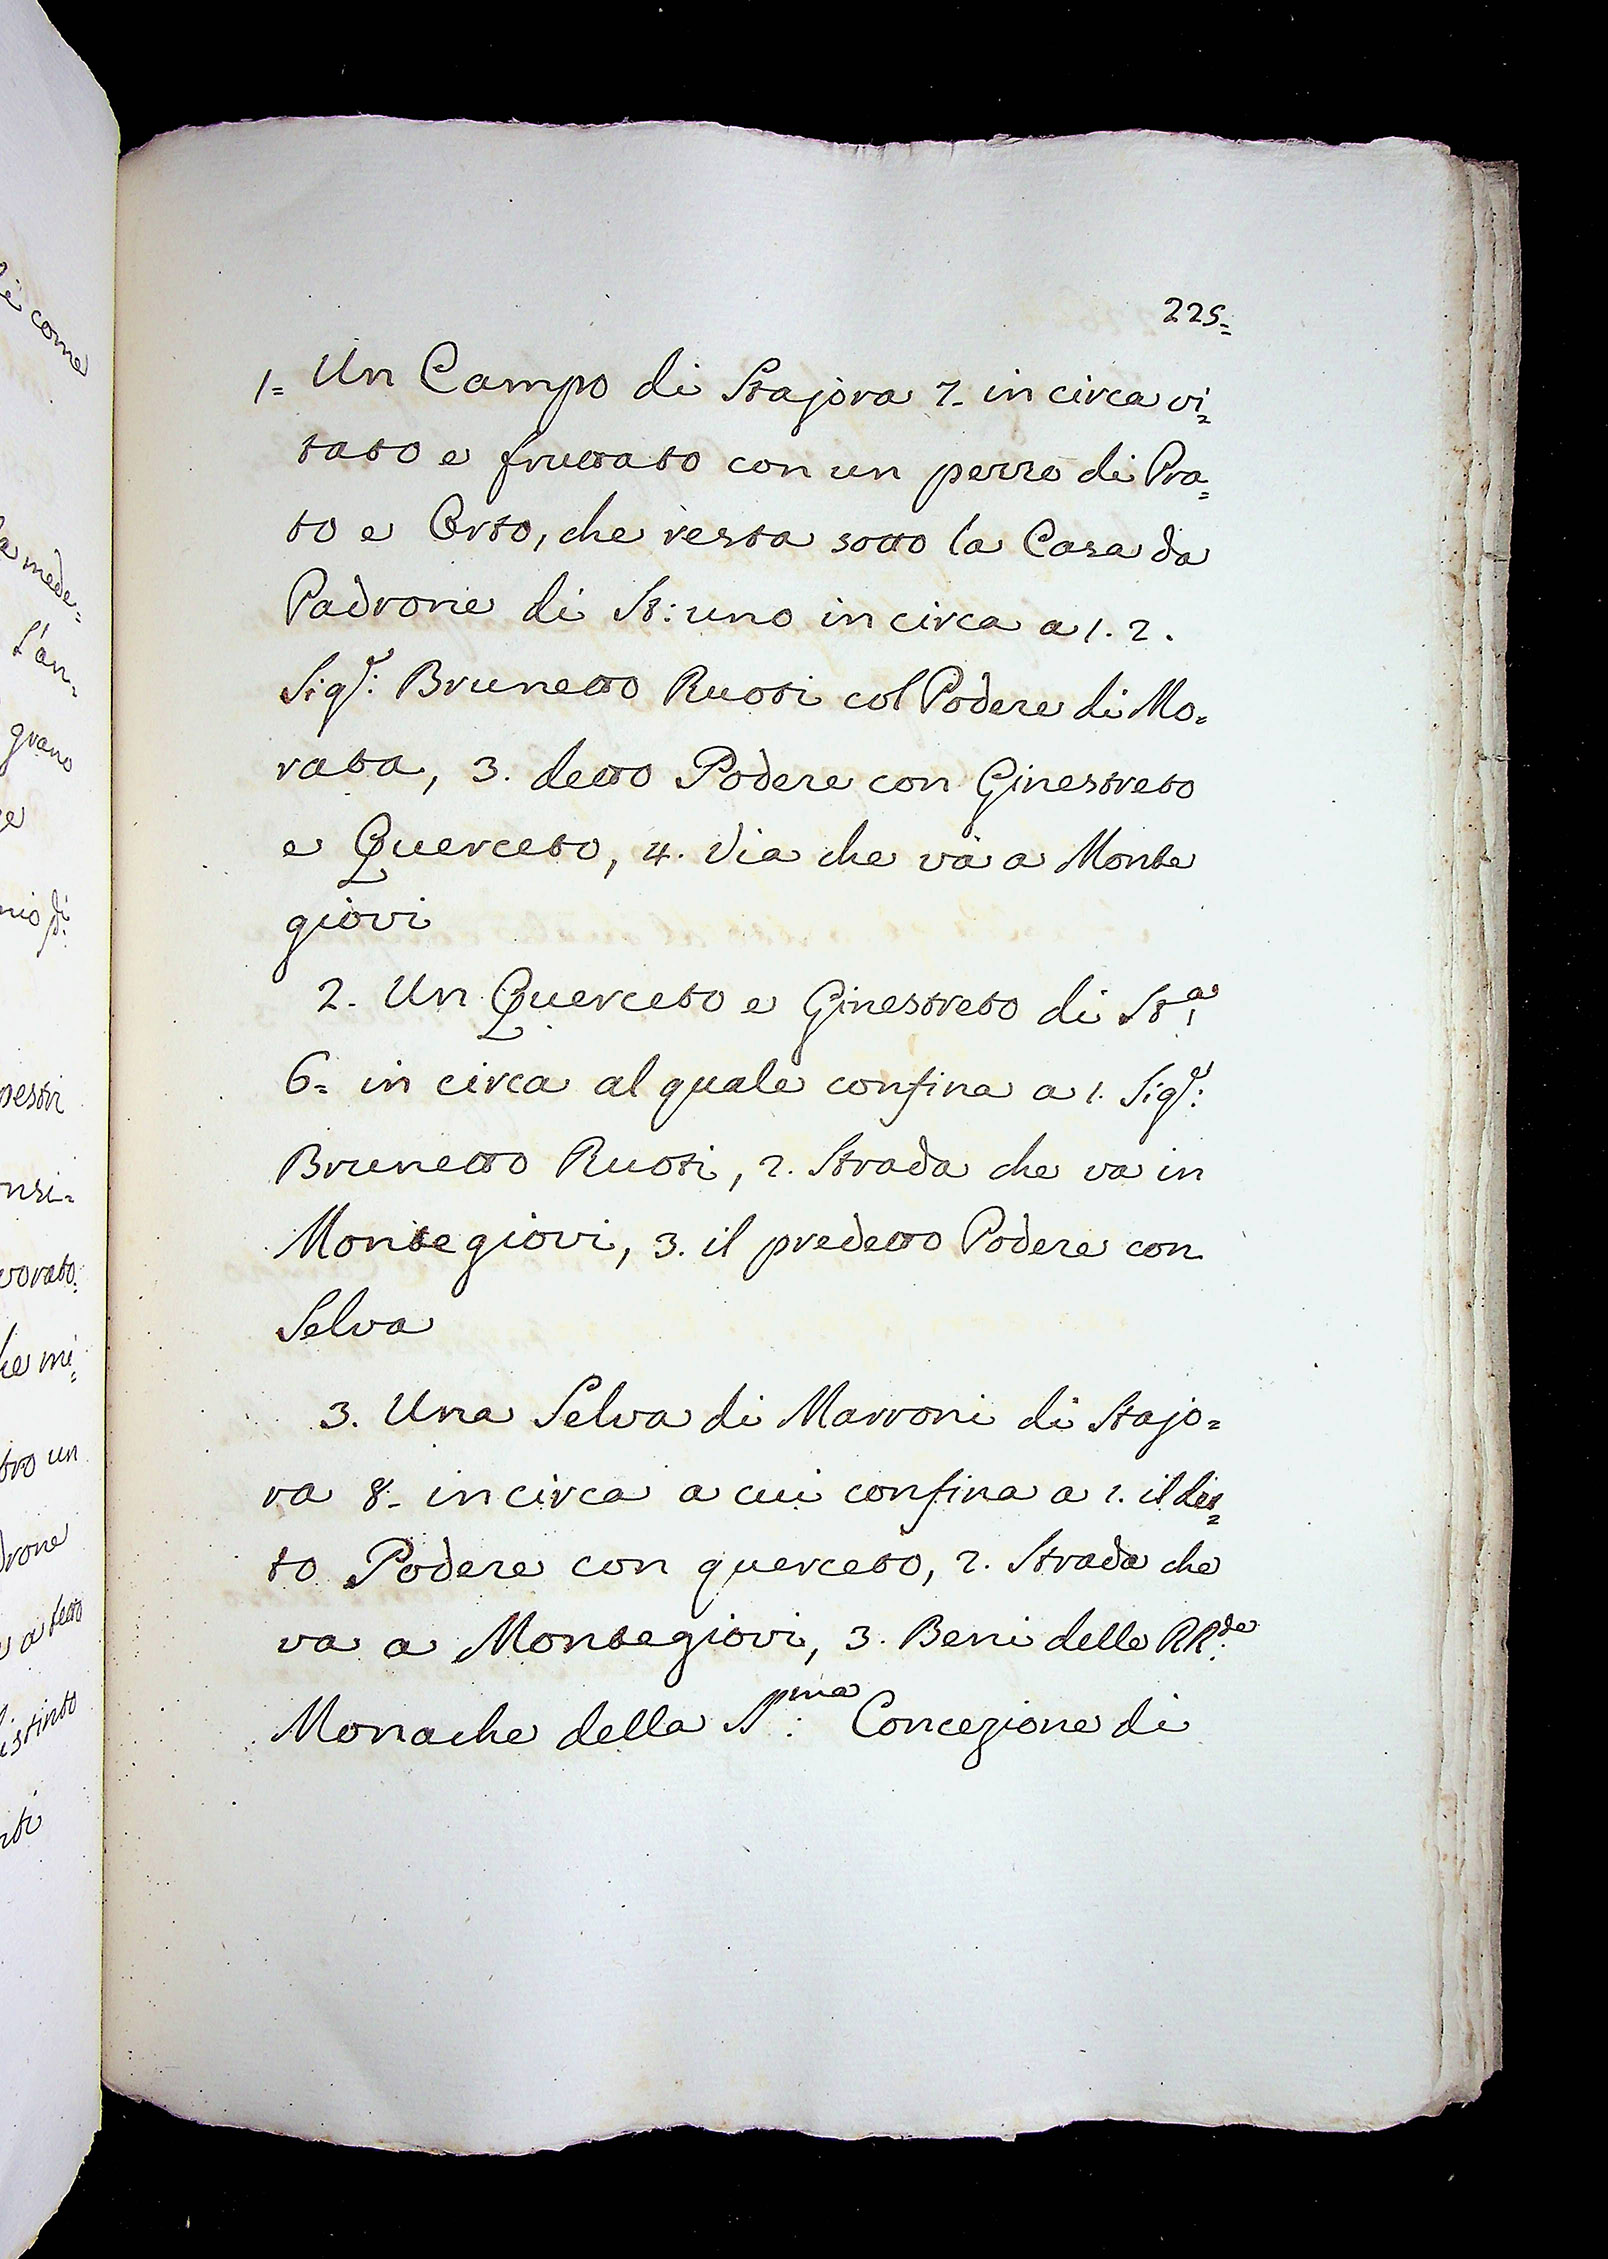 225=
1= Un Campo di Stajora 7- in circa vi=
tato e fruttato con un pezzo di Pra=
to e Orto, che resta sotto la Casa da
Padrone di St: uno in circa a 1. 2.
Sig.r: Brunetto Ruoti col Podere di Mo=
rata, 3. detto Podere con Ginestreto
e Querceto, 4. Via che và a Monte
giovi
2. Un Querceto e Ginestreto di St.a
6= in circa al quale confina a 1. Sig.r:
Brunetto Ruoti, 2. Strada che va in
Montegiovi, 3. il predetto Podere con
Selva
3. Una Selva di Marroni di Stajo=
ra 8- in circa a cui confina a 1. il det=
to Podere con querceto, 2. Strada che
va a Montegiovi, 3. Beni delle RR.de
Monache della SS.ma: Concezione di